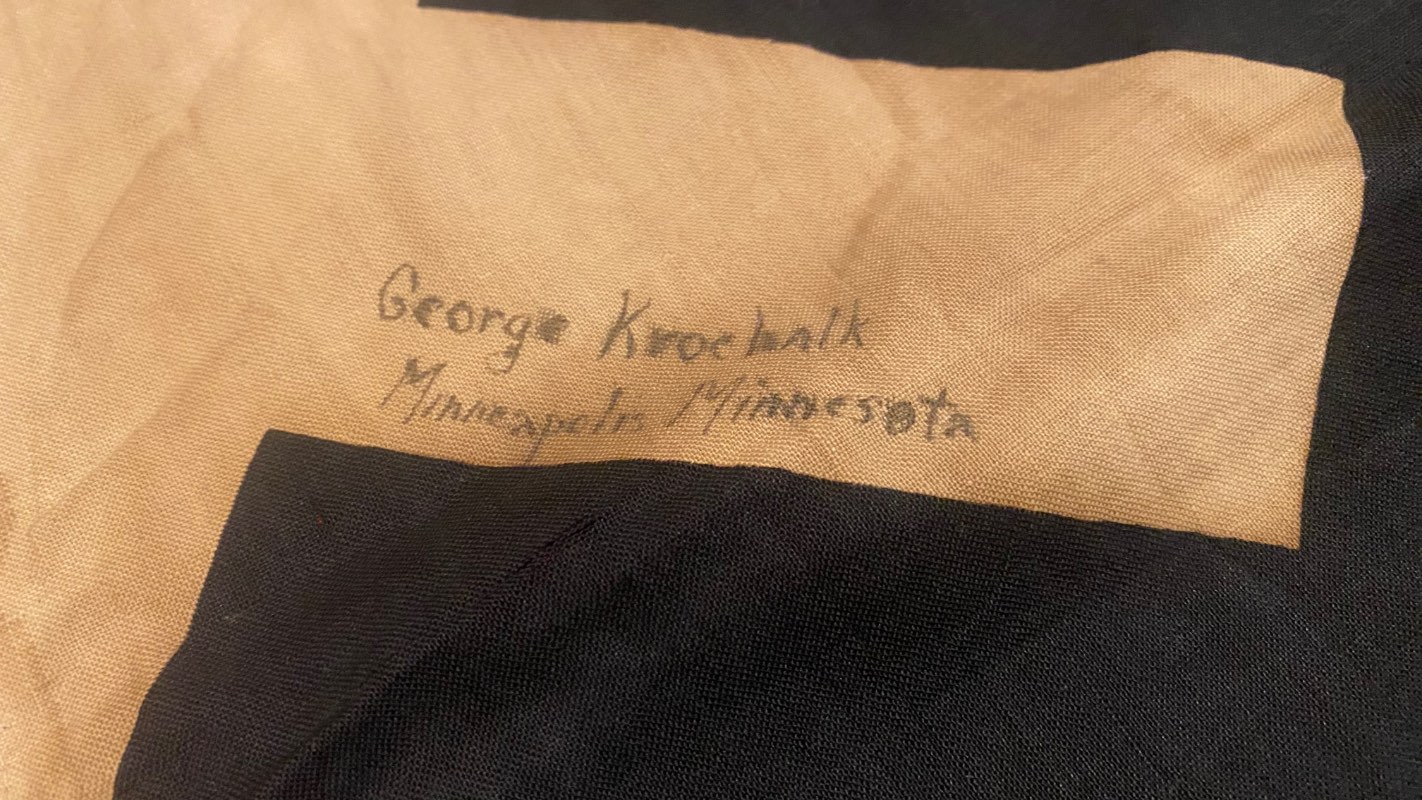 George Kroewalk
Minneapolis Minnesota